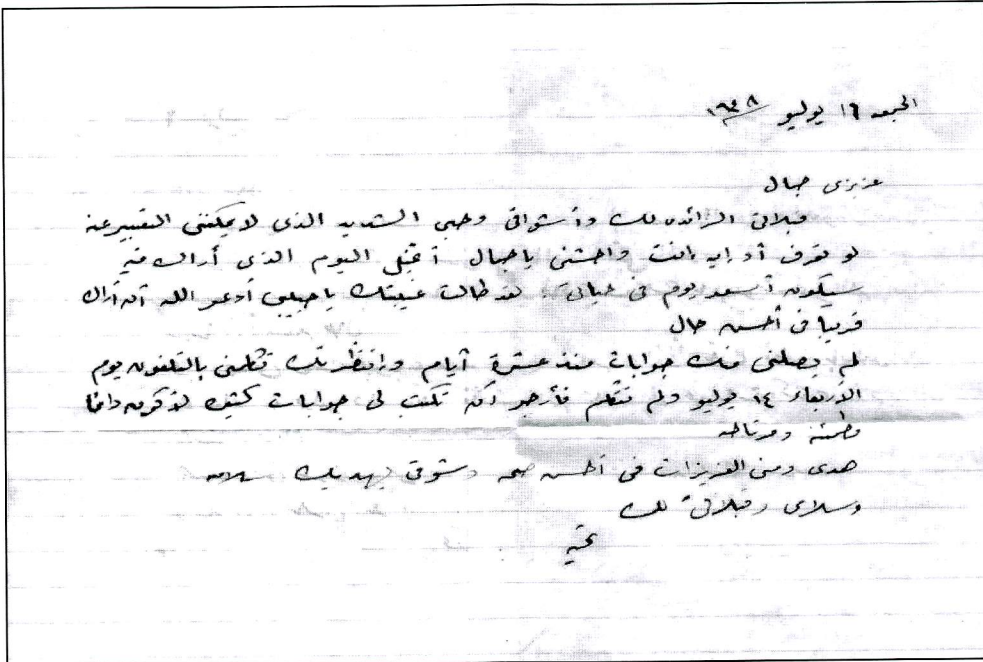 الجمعه ١٦ يوليو ١٩٤٨
عزيزى جمال
قبلاتى الزائده لك وأشواقى وحبى الشديد الذى لا يمكننى التعبير عنه
لو تعرف أد ايه انت واحشنى ياجمال أتخيل اليوم الذى أراك فيه
سيكون أسعد يوم فى حياتى. لقد طالت غيبتك ياحبيبى أدعو الله أن أراك
قريباً فى أحسن حال
لم يصلنى منك جوابات منذ عشرة أيام وانتظرتك تكلمنى بالتلفون يوم
الأربعاء ١٤ يوليو ولم تتكلم فأرجو أن تكتب لى جوابات كثيره لأكون دائماً
مطمئنه ومرتاحه
هدى ومنى العزيزات فى أحسن صحه وشوقى يهديك سلامه
وسلامى وقبلاتى لك
تحيه